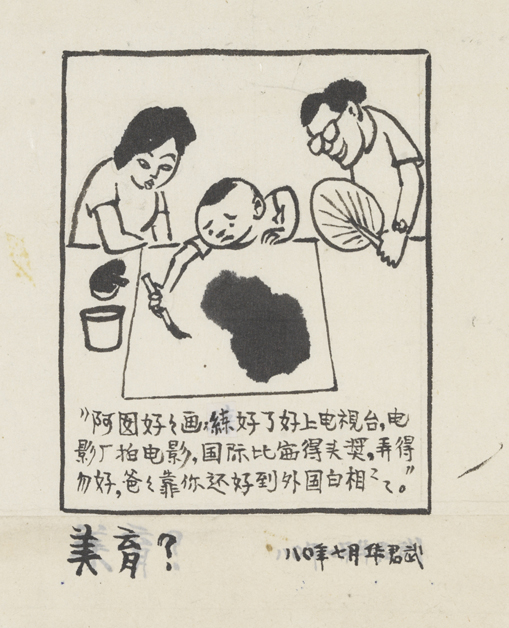 "阿囡好〻画,练好了好上电视台,电
影厂拍电影,国际比宝得头奖,弄得
勿好,爸〻靠你还好到外国白相〻了。"
美育?
八〇年七月华君武